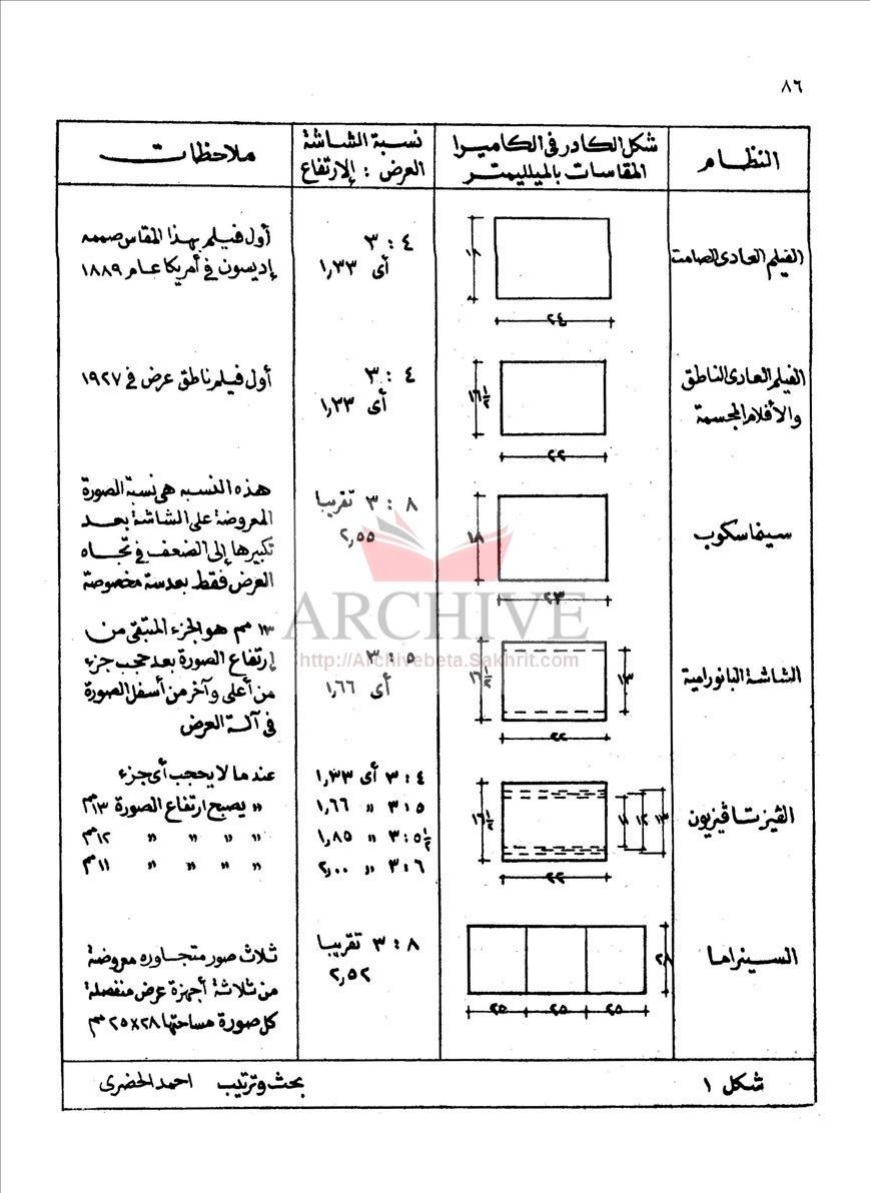 ٨٦
النظام
شكل الكادر فى الكاميرا
المقاسات بالميلليمتر
نسبة الشاشة
العرض : الارتفاع
ملاحظات
الفيلم العادى الصامت
١٨
٢٤
٤ : ٣
أى ١,٣٣
أول فيلم بهذا المقاس صممه
إديسون فى أمريكا عام ١٨٨٩
الفيلم العادى الناطق
والأفلام المجسمة
١٦ ١/٢
٢٢
٤ : ٣
أى ١,٣٣
أول فيلم ناطق عرض فى ١٩٢٧
سينما سكوب
١٨
٢٣
٨ : ٣ تقريبا
٢,٥٥
هذه النسبه هى نسبة الصورة
المعروضة على الشاشة بعد
تكبيرها إلى الضعف فى تجاه
العرض فقط بعدسة مخصوصة
ARCHIVE
http://Archivebeta.Sakhrit.com
الشاشة البانورامية
١٦ ١/٢
١٣
٢٢
٥ : ٣
أى ١,٦٦
١٣ مم هو الجزء المتبقى من
إرتفاع الصورة بعد حجب جزء
من أعلى وآخر من أسفل الصورة
فى آلة العرض
الڤيزتاڤيزيون
١٦ ١/٢
١١ ١٢ ١٣
٢٢
٤ : ٣ أى ١,٣٣
٥ : ٣ " ١,٦٦
٥ ١/٢ : ٣ " ١,٨٥
٦ : ٣ " ٢,٠٠
عندما لا يحجب أى جزء
" يصبح ارتفاع الصورة ١٣مم
" " " " ١٢مم
" " " " ١١مم
السينراما
٢٨
٢٥ ٢٥ ٢٥
٨ : ٣ تقريبا
٢,٥٢
ثلاث صور متجاوره معروضة
من ثلاثة أجهزة عرض منفصلة
كل صورة مساحتها ٢٨×٢٥ مم
شكل ١
بحث وترتيب احمد الحضرى